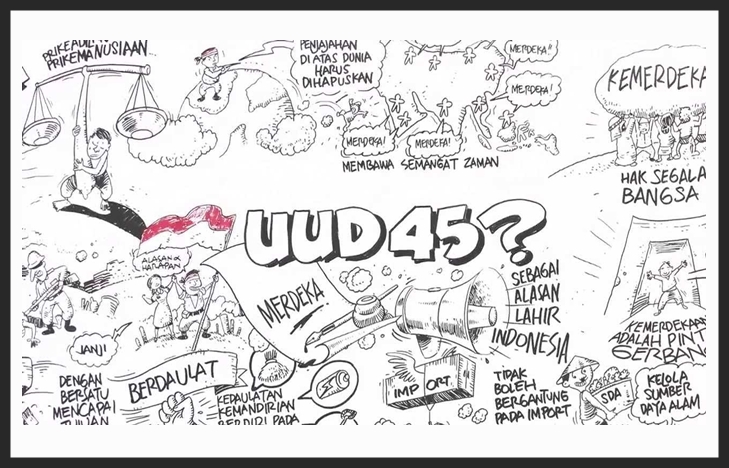 PRIKEADILAN
PRIKEMANUSIAAN
PENJAJAHAN
DI ATAS DUNIA
HARUS
DIHAPUSKAN
MERDEKA!!
MERDEKA!
MERDEKA!
MERDEKA!
MEMBAWA SEMANGAT ZAMAN
KEMERDEKA
HAK SEGALA
BANGSA
UUD 45?
ALASAN &
HARAPAN
MERDEKA
SEBAGAI
ALASAN
LAHIR
INDONESIA
KEMERDEKAAN
ADALAH PINT
GERBANG
JANJI
DENGAN
BERSATU
MENCAPAI
TUJUAN
BERDAULAT
KEDAULATAN
KEMANDIRIAN
BERDIRI PADA
IMPORT
TIDAK
BOLEH
BERGANTUNG
PADA IMPORT
SDA
KELOLA
SUMBER
DAYA ALAM